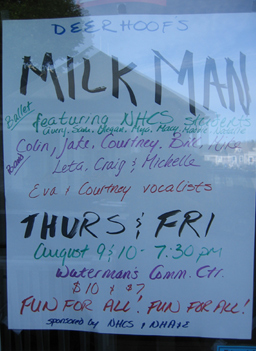 DEERHOOFS
MILK MAN
Ballet
featuring NHCS students
Avery, Sam, Megan, Mya,
Colin, Jake, Courtney,
Band
Leta, Craig & Michelle
Eva & Courtney vocalists
THURS & FRI
August 9 & 10 - 7:30 pm
Waterman's Comm. Ctr.
$10 & $7
FUN FOR ALL! FUN FOR ALL!
sponsored by NHCS &